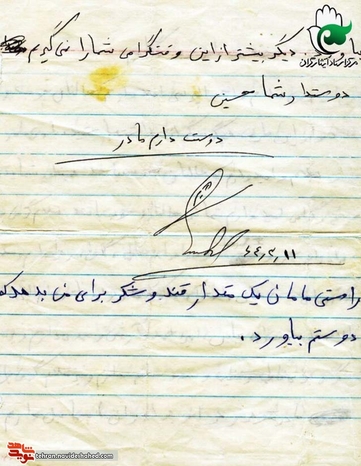 دیگر بیشتر از این وقت گرامی شما را نمی گیرم
دوستدار شما حسین
دوست دارم مادر
۶۴,۲,۱۱
راستی مامان یک مقدار قند و شکر برای من بدهد که
دوستم بیاورد.
نوید شاهد
tehran.navideshahed.com